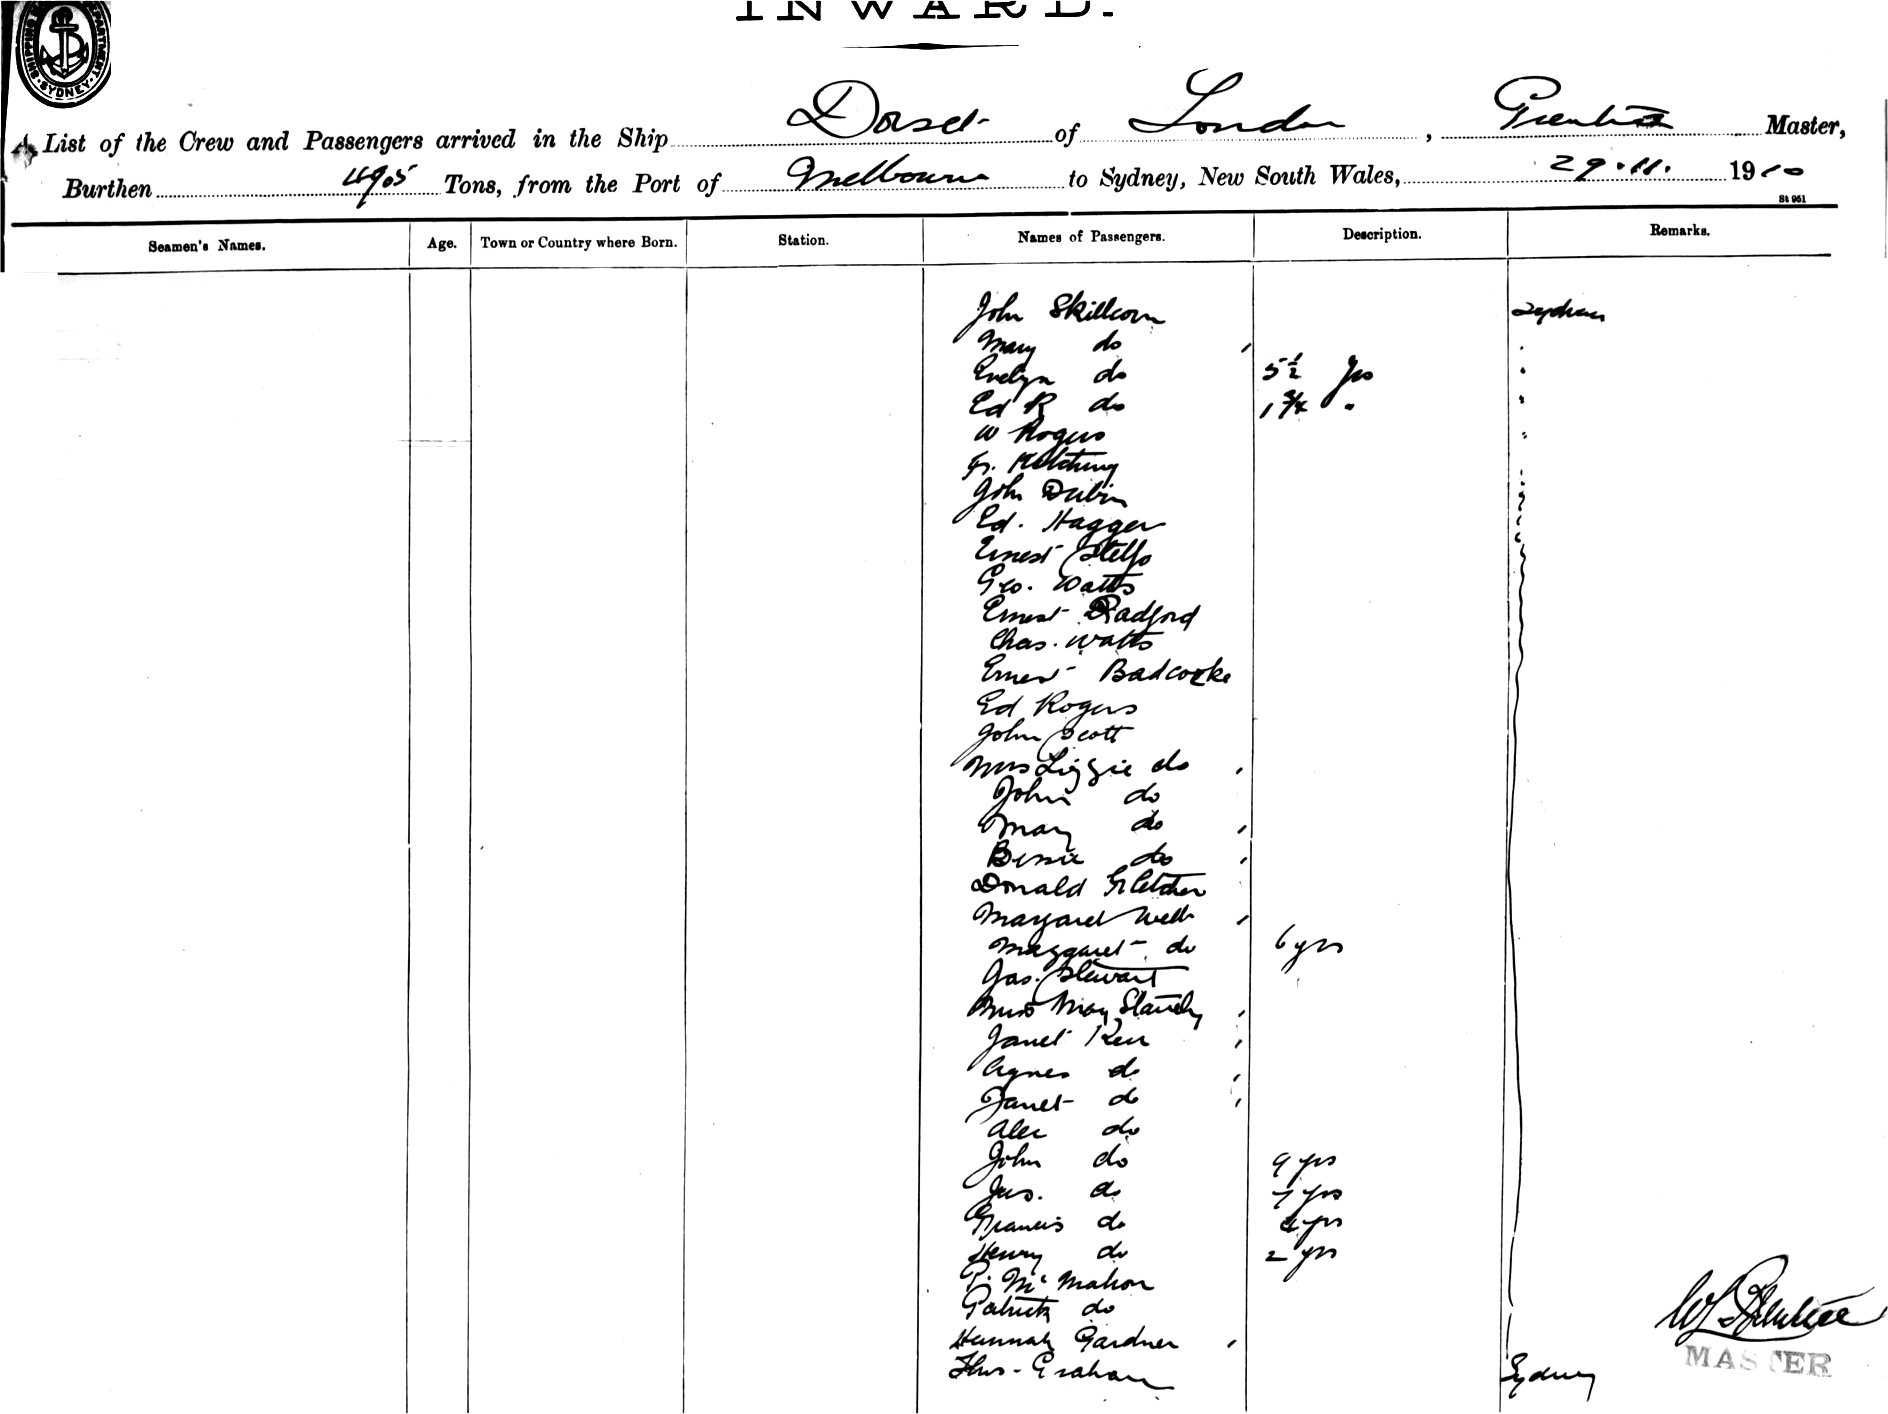 INWARD.
SYDNEY
A List of the Crew and Passengers arrived in the Ship Dorset of London, Master,
Burthen 4905 Tons, from the Port of Melbourne to Sydney, New South Wales, 29.11. 1910
St 961
Seamen's Names. Age. Town or Country where Born. Station. Names of Passengers. Description. Remarks.
John Skillcorn Sydney
Mary do
Evelyn do 5½ yrs
Ed R do 1¾ "
W Rogers
John Dubin
Ed. Hagger
Ernest
Geo. Watts
Ernest Radford
Chas. Watts
Ernest Badcocke
Ed Rogers
John Scott
Mrs Lizzie do
John do
Mary do
Bessie do
Donald Fletcher
Margaret Webb
Margaret do 6 yrs
Jas. Stewart
Miss May
Janet Kerr
Agnes do
Janet do
Alec do
John do 9 yrs
Jas. do 7 yrs
Francis do 4 yrs
Henry do 2 yrs
P. McMahon
Patrick do
Hannah Gardner
Thos. Graham Sydney
MASTER